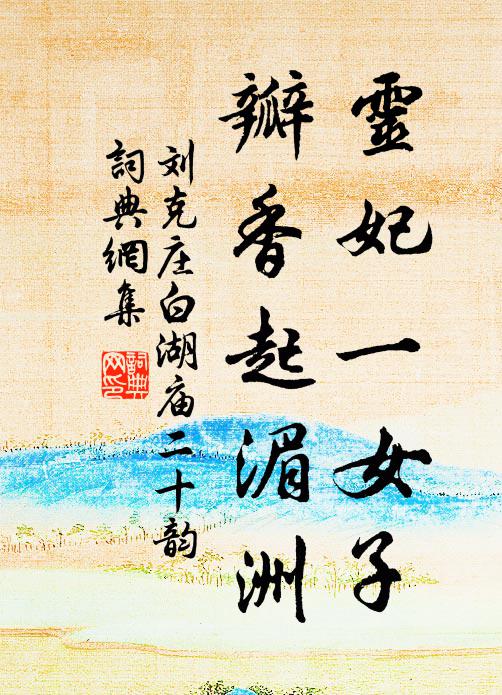 靈妃一女子
瓣香起湄洲
刘克庄白湖庙二十韵
詞典網集
詞典网印